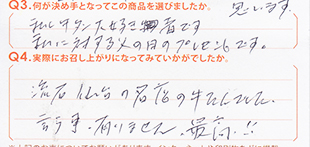 Q3.何が決め手となってこの商品を選びましたか。
思います。
私しギタン大好き者です
私に対する父の日のプレゼントです。
Q4.実際にお召し上がりになってみていかがでしたか。
流石仙台の名店の牛たんでした
言う事、有りません、最高!!